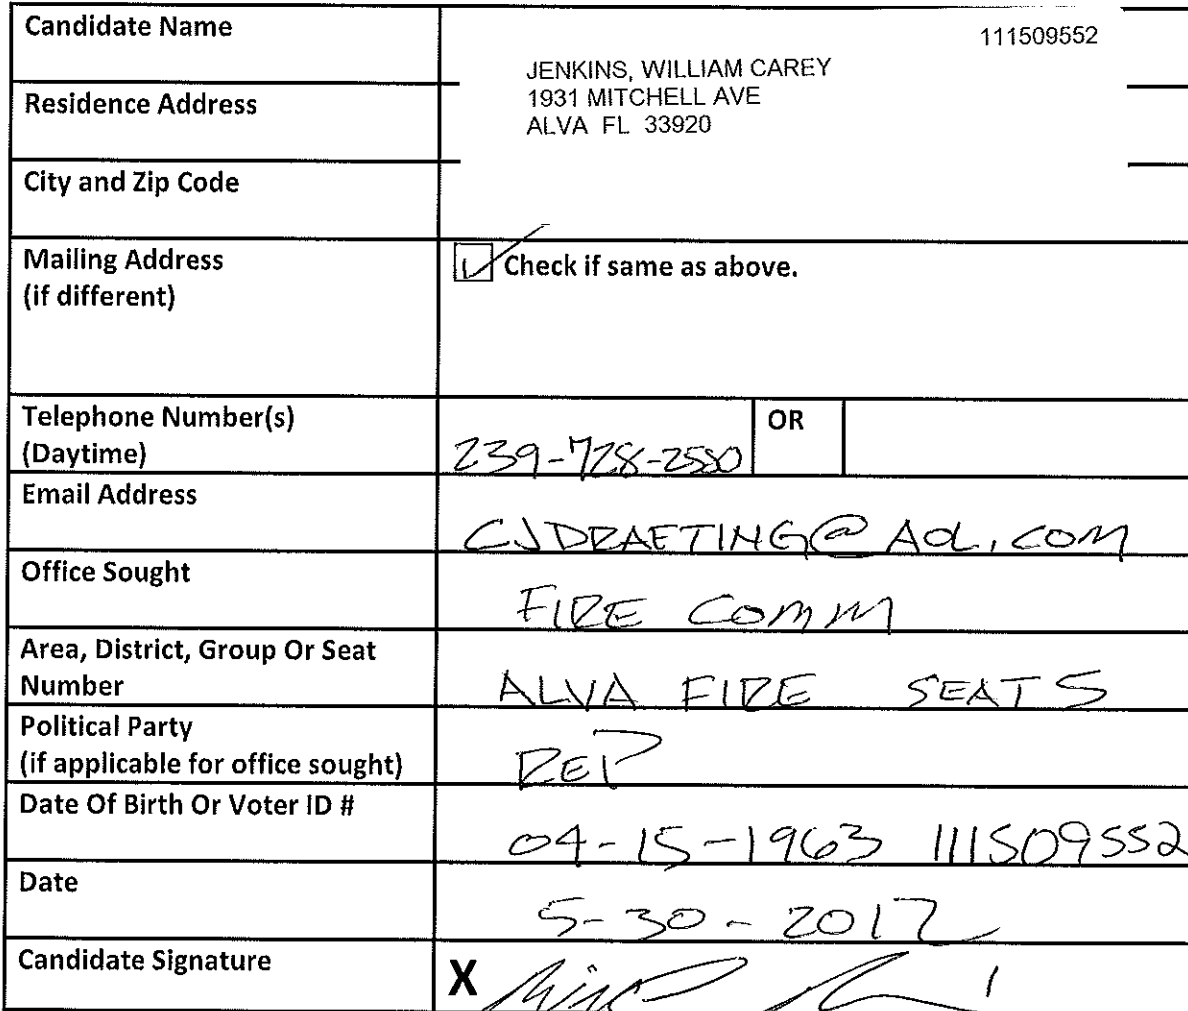 Candidate Name
111509552
JENKINS, WILLIAM CAREY
Residence Address
1931 MITCHELL AVE
ALVA FL 33920
City and Zip Code
Mailing Address
(if different)
Check if same as above.
Telephone Number(s)
(Daytime)
239-728-2580
OR
Email Address
CJDRAFTING@AOL.COM
Office Sought
FIRE COMM
Area, District, Group Or Seat
Number
ALVA FIRE SEAT 5
Political Party
(if applicable for office sought)
REP
Date Of Birth Or Voter ID #
04-15-1963 111509552
Date
5-30-2012
Candidate Signature
X